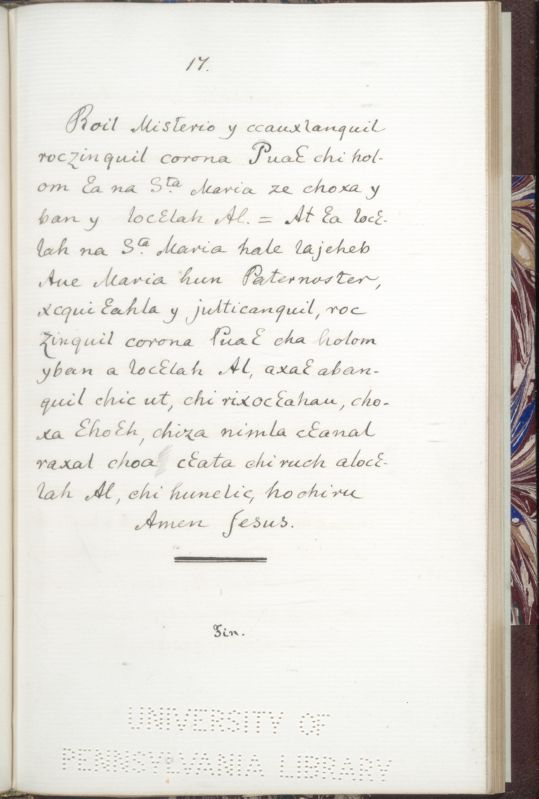 17.
Roil Misterio y ccauxlanquil
roczinquil corona Puaɛ chi hol-
om ɛa na Sta Maria ze choxa y
ban y locɛlah Al. = At ɛa locɛ-
lah na Sa Maria hale lajeheb
Aue Maria hun Paternoster,
xcqui ɛahla y julticanquil, roc
zinquil corona Puaɛ cha holom
yban a locɛlah Al, axaɛ aban-
quil chic ut, chi rixocɛahau, cho-
xa ɛhoɛh, chiza nimla cɛanal
raxal choa cɛata chiruch alocɛ-
lah Al, chi hunelic, hochiru
Amen Jesus.
Fin.
UNIVERSITY OF
PENNSYLVANIA LIBRARY